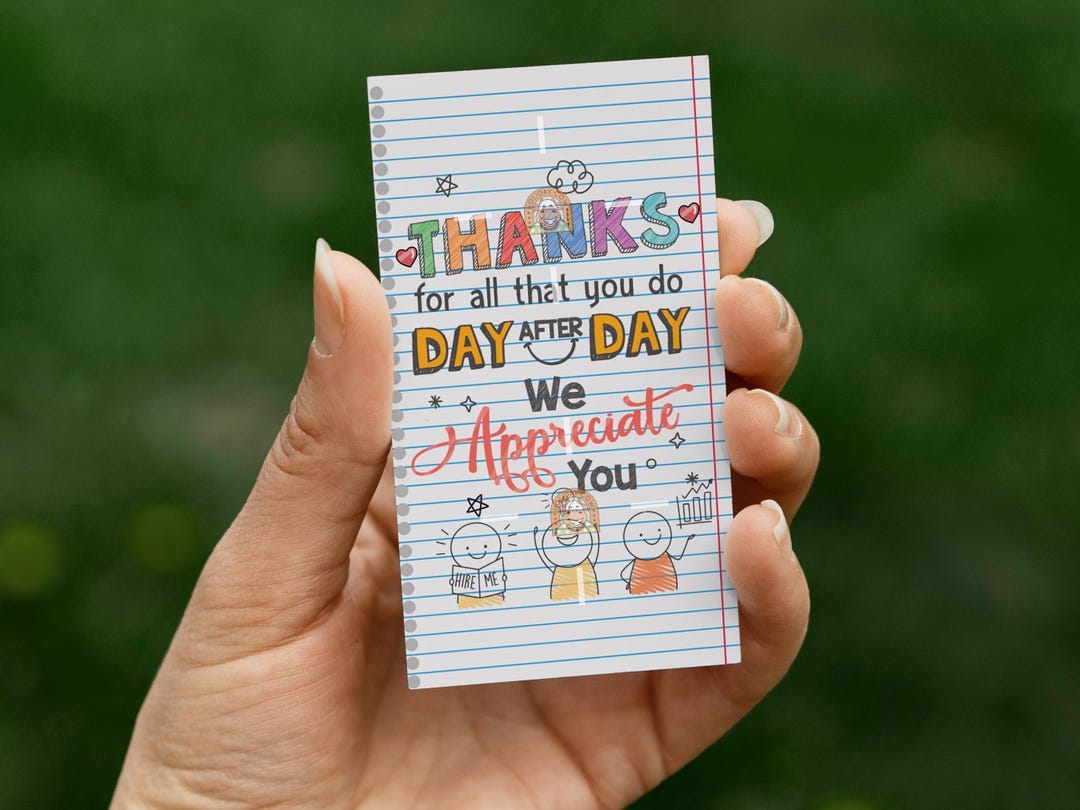 THANKS
for all that you do
DAY AFTER DAY
We
Appreciate
You
HIRE ME